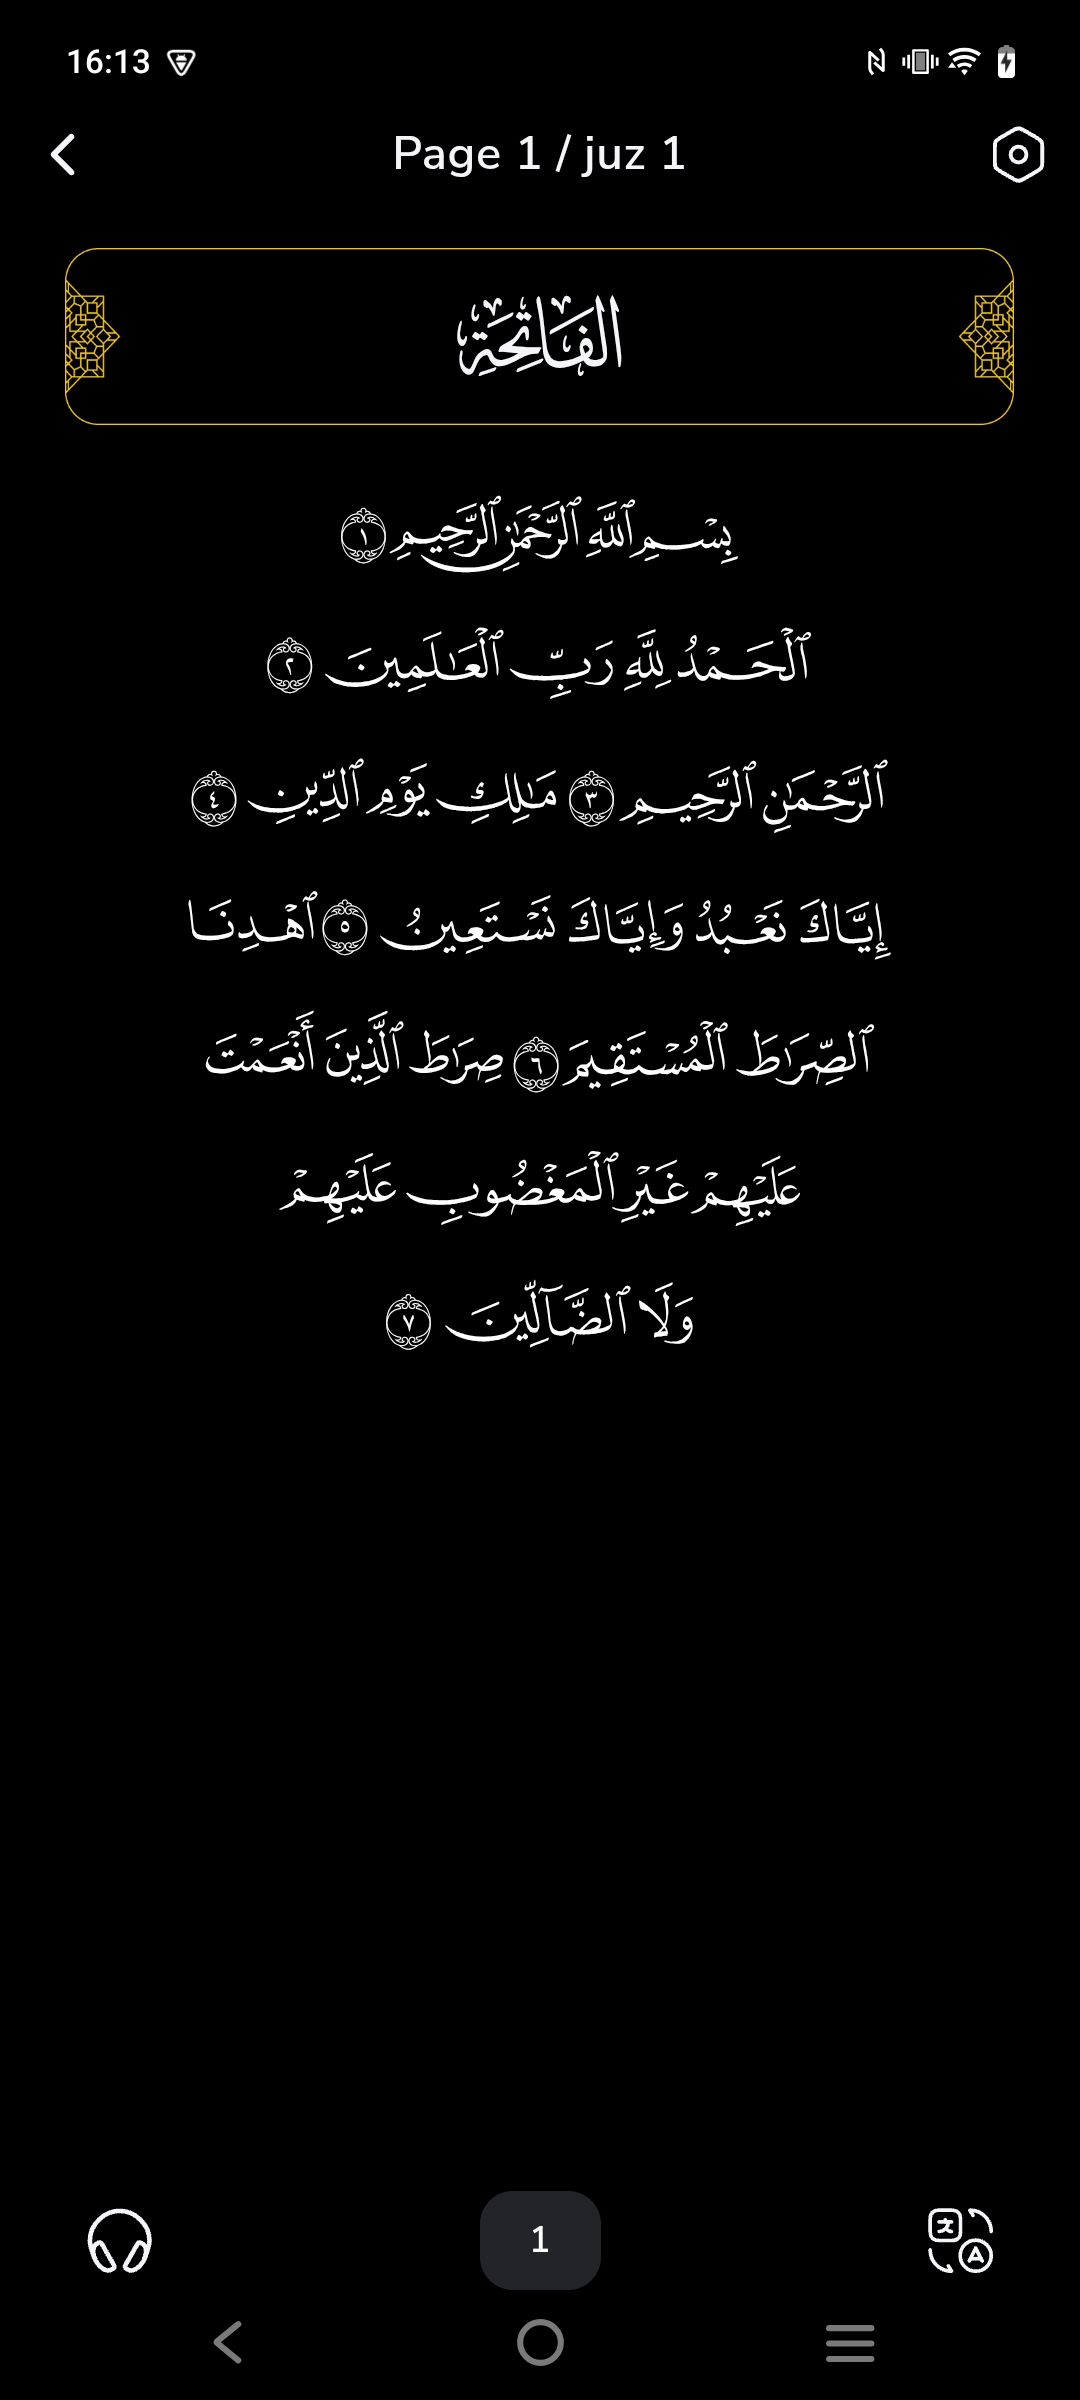 16:13
Page 1 / juz 1
الفَاتِحَةِ
بِسۡمِ ٱللَّهِ ٱلرَّحۡمَٰنِ ٱلرَّحِيمِ ١
ٱلۡحَمۡدُ لِلَّهِ رَبِّ ٱلۡعَٰلَمِينَ ٢
ٱلرَّحۡمَٰنِ ٱلرَّحِيمِ ٣ مَٰلِكِ يَوۡمِ ٱلدِّينِ ٤
إِيَّاكَ نَعۡبُدُ وَإِيَّاكَ نَسۡتَعِينُ ٥ ٱهۡدِنَا
ٱلصِّرَٰطَ ٱلۡمُسۡتَقِيمَ ٦ صِرَٰطَ ٱلَّذِينَ أَنۡعَمۡتَ
عَلَيۡهِمۡ غَيۡرِ ٱلۡمَغۡضُوبِ عَلَيۡهِمۡ
وَلَا ٱلضَّآلِّينَ ٧
1